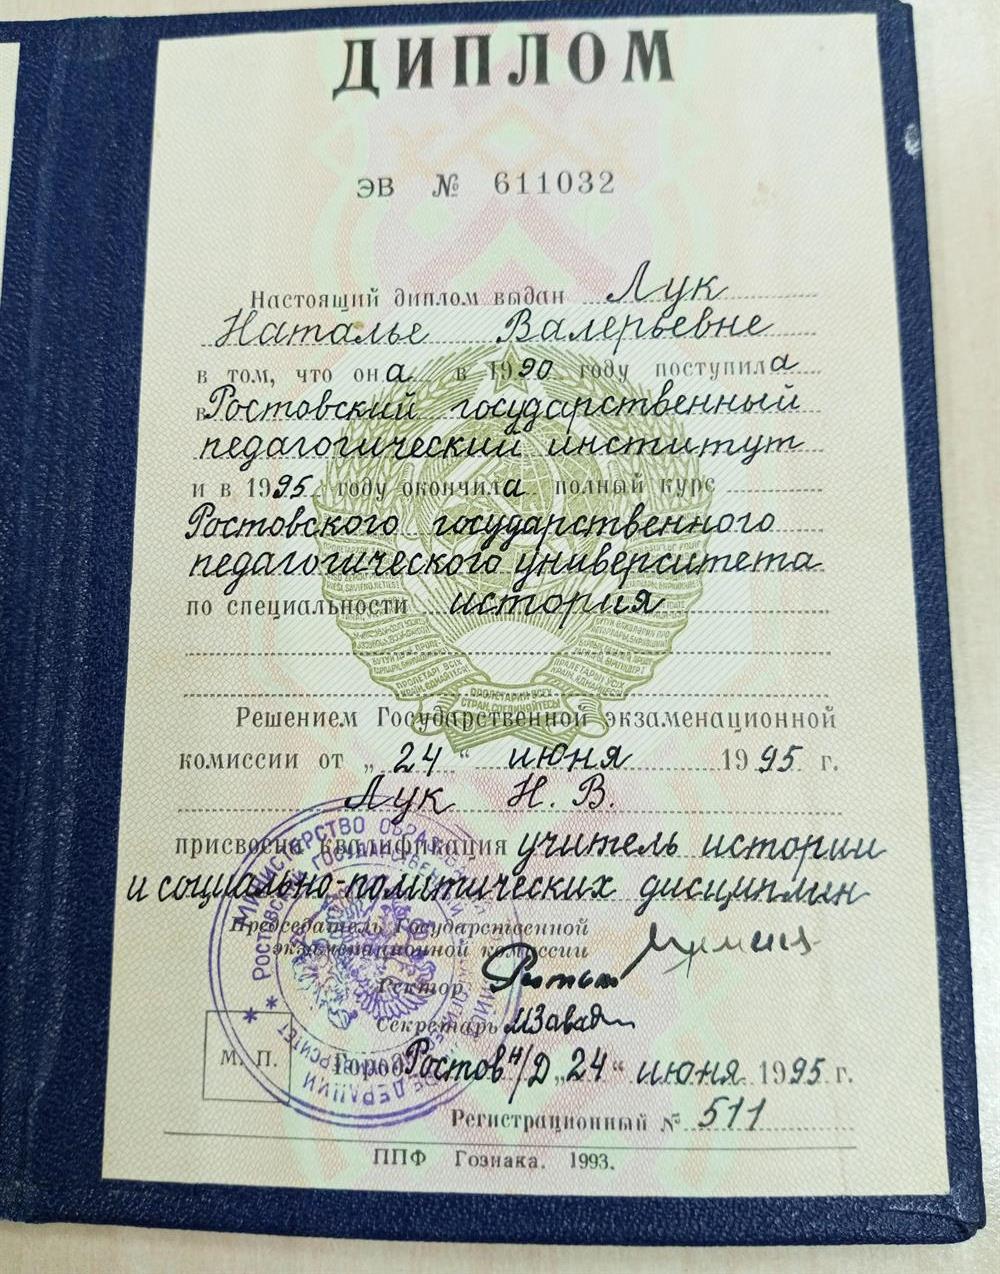 ДИПЛОМ
ЭВ № 611032
Настоящий диплом выдан Лук
Наталье Валерьевне
в том, что она в 1990 году поступила
в Ростовский государственный
педагогический институт
и в 1995 году окончила полный курс
Ростовского государственного
педагогического университета
по специальности история
ПРОЛЕТАРИИ ВСЕХ
СТРАН, СОЕДИНЯЙТЕСЬ!
Решением Государственной экзаменационной
комиссии от „24“ июня 1995 г.
Лук Н. В.
присвоена квалификация учитель истории
и социально-политических дисциплин
Председатель Государственной
экзаменационной комиссии
Ректор
Секретарь МЗавад
М. П.
Город Ростов н/Д „24“ июня 1995 г.
Регистрационный № 511
ППФ Гознака. 1993.
МИНИСТЕРСТВО